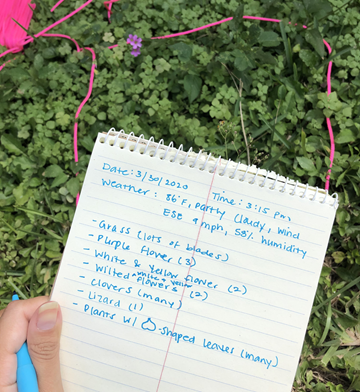 Date: 3/30/2020 Time: 3:15 Pm
Weather: 86°F, Partly Cloudy, Wind
ESE 9mph, 55% humidity
- Grass (lots of blades)
- Purple flower (3)
- White & yellow flower (2)
- Wilted white & yellow flowers (2)
- Clovers (many)
- Lizard (1)
- Plants w/ -shaped leaves (many)